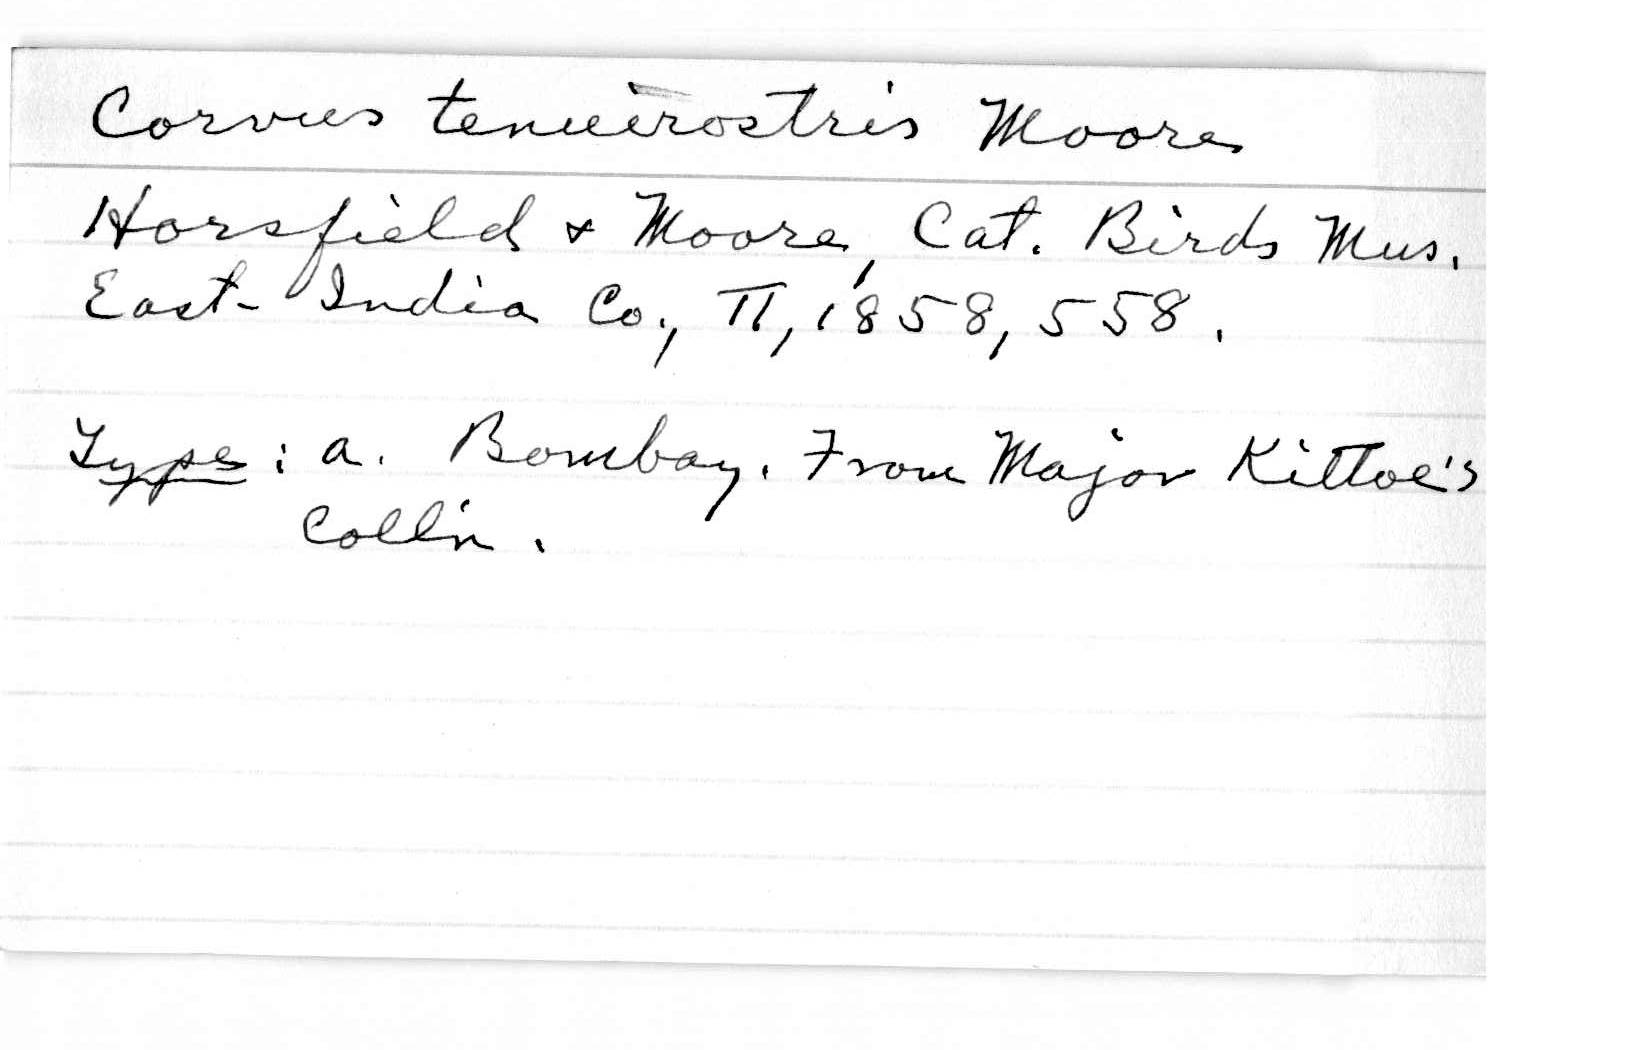 Corvus tenuirostris Moore
Horsfield & Moore, Cat. Birds Mus.
East-India Co., II, 1858, 558.
Type: a. Bombay. From Major Kittoe's
Coll'n.